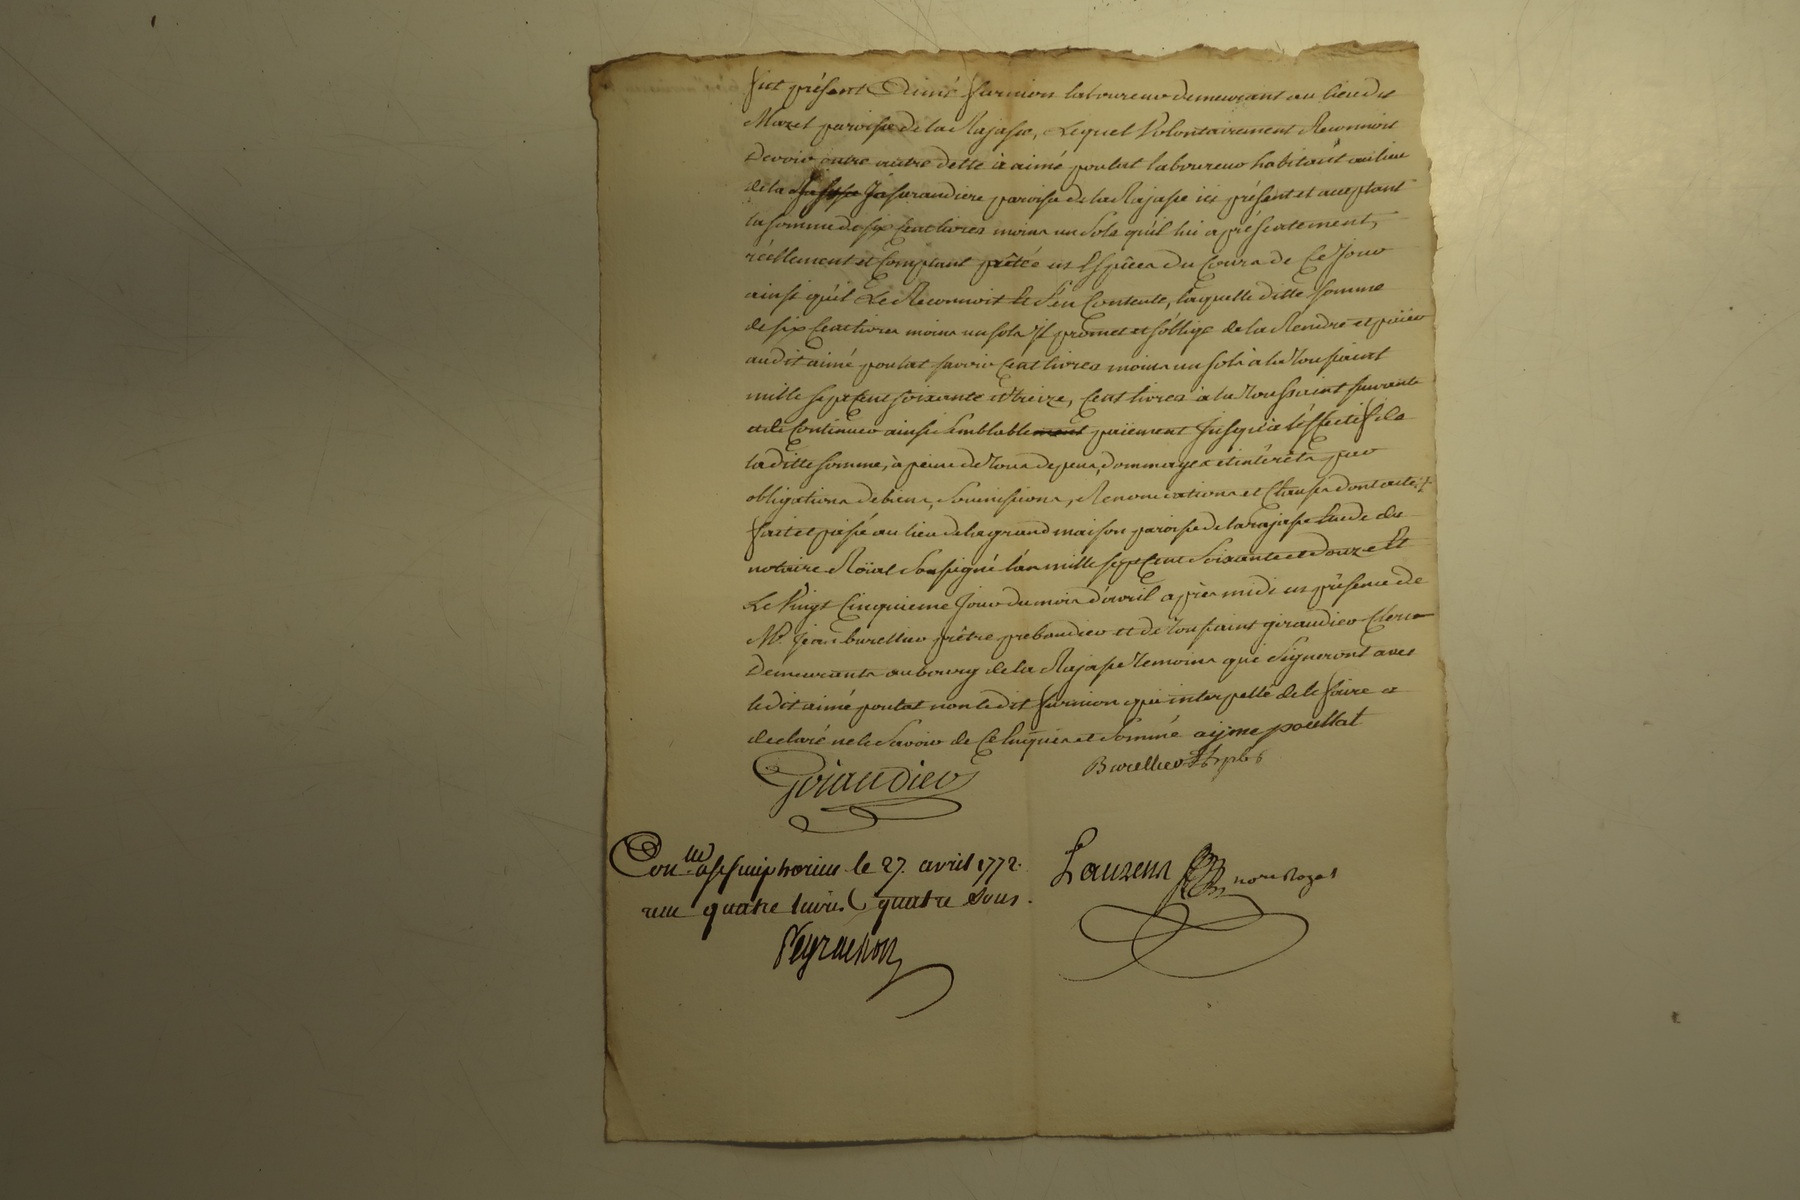 fut présent Aimé furnion laboureur demeurant au lieu du
Mazet paroisse de la Rajasse, Lequel Volontairement Reconnoit
Devoir outre autre dette à aimé poulat laboureur habitant au lieu
de la Jasserandiere paroisse de la Rajasse ici présent et acceptant
la somme de six Cent livres moins un Sols qu'il lui a présentement,
réellement et Comptant prêtée en Espèces du Cours de Ce Jour
ainsi qu'il Le Reconnoit Et s'en Contente, laquelle ditte somme
de six Cent livres moins un sols Il promet et s'oblige de la Rendre et païer
audit aimé poulat savoir Cent livres moins un sols à la Toussaint
mille sept Cent soixante et treize, Cent livres à la Toussaint suivante
et de Continuer ainsi semblable paiement Jusqu'à l'effectif de
la ditte somme, à peine de Tous depens, dommages et intérêts par
obligations de biens, Soumissions, Renonciations et Clauses dont acte
fait et passé au lieu de la grand maison paroisse de la rajasse Etude du
notaire Roïal Soussigné l'an mille sept Cent Soixante et Douze Et
Le Vingt Cinquieme Jour du mois d'avril après midi en présence de
Mr. Jean burellier prêtre prebandier et de Toussaint giraudier Clerc
Demeurants au bourg de la Rajasse Temoins qui Signeront avec
ledit aimé poulat non ledit furnion qui interpellé de le faire a
declaré ne le Savoir de Ce Enquis et Sommé aijme poullat
Giraudier
Burellier
Con.lé à st simphorien le 27. avril 1772.
reçu quatre livres quatre sous.
Lauzens nore Royal
Peyrachon